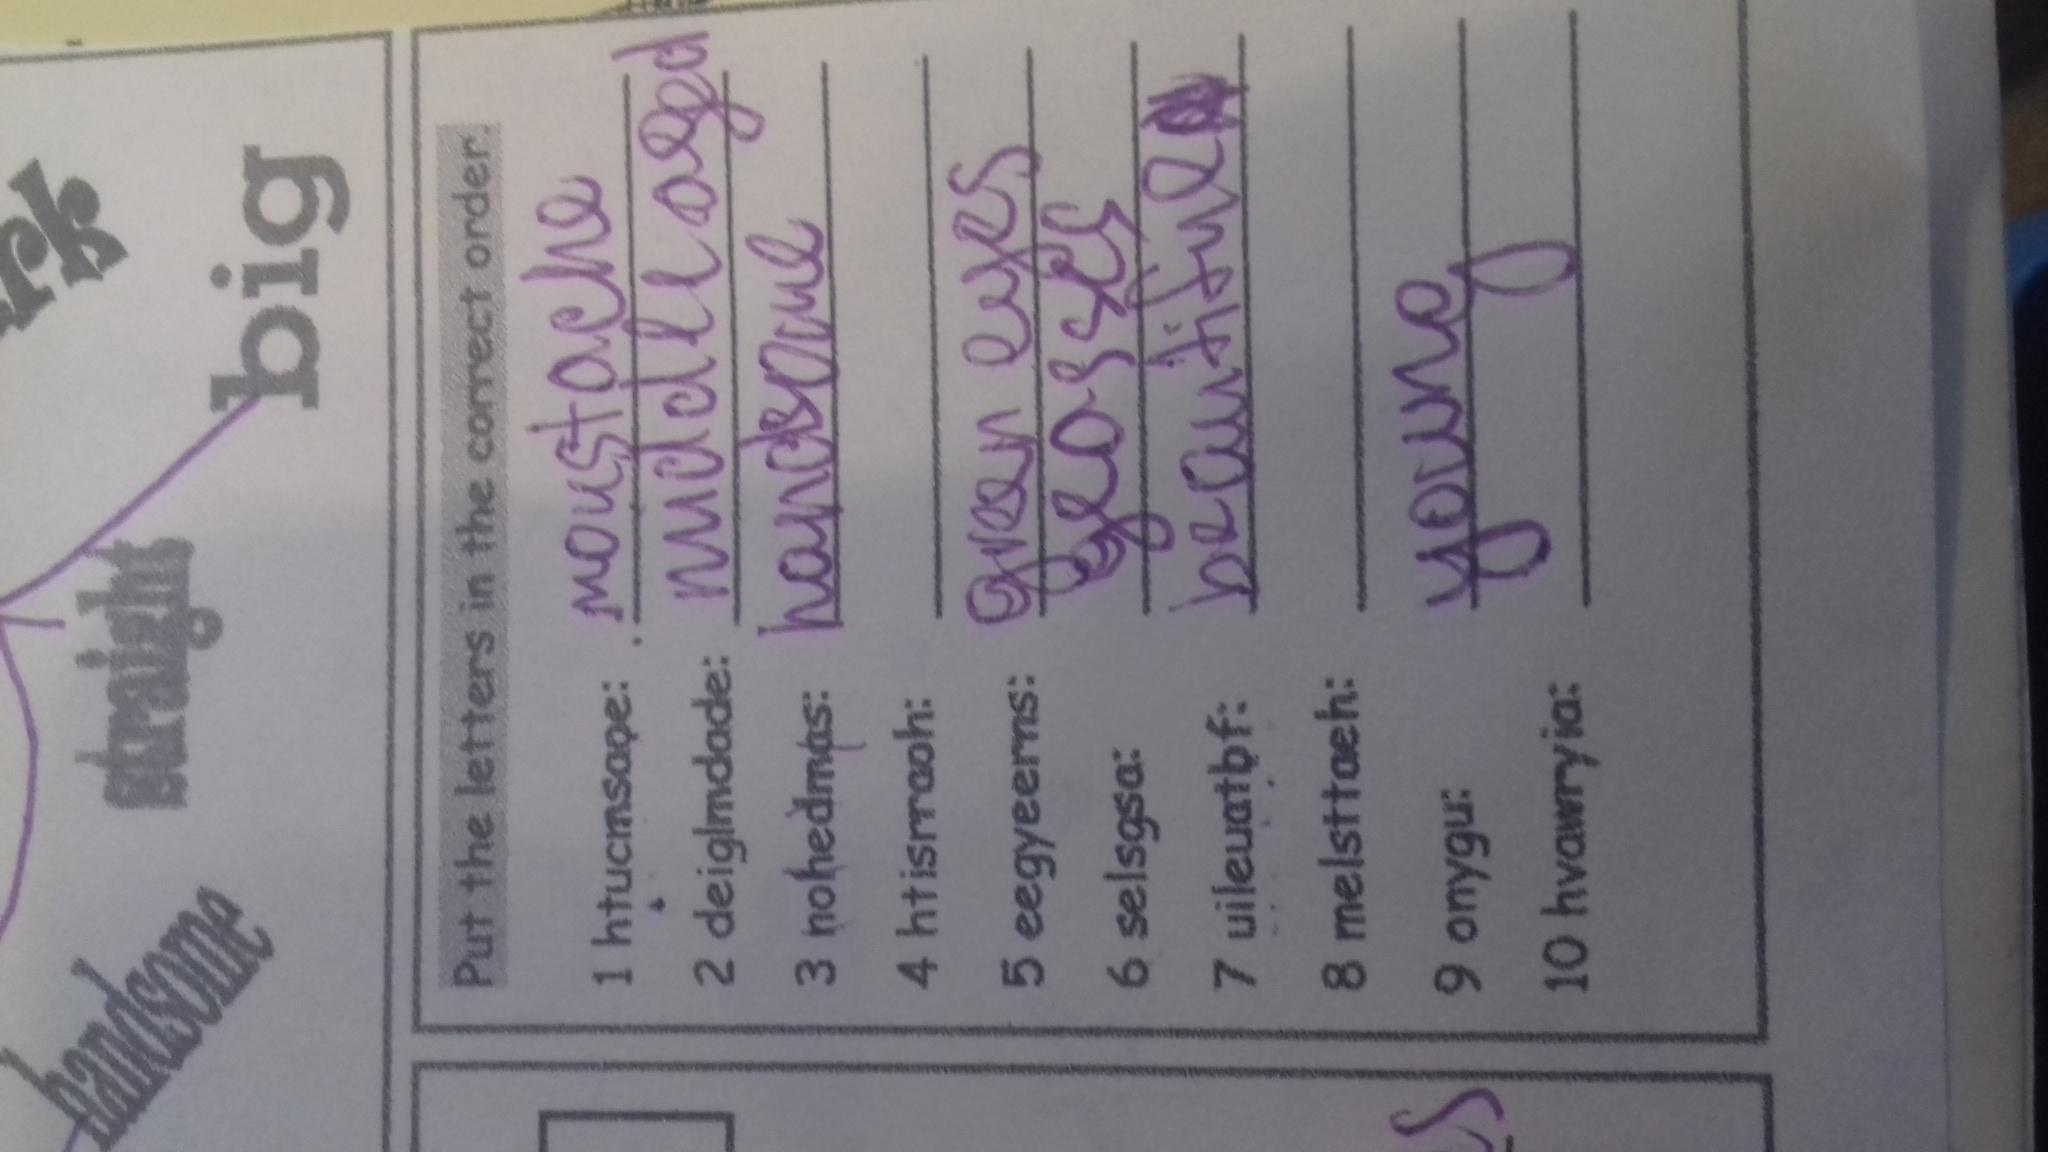 big
straight
handsome
Put the letters in the correct order.
1 htucmsaoe: moustache
2 deiglmdade: middle aged
3 nohedmas: handsome
4 htisrraoh:
5 eegyeerns: green eyes
6 selsgsa: glasses
7 uileuatbf: beautiful
8 melsttaeh:
9 onygu: young
10 hvawryia: